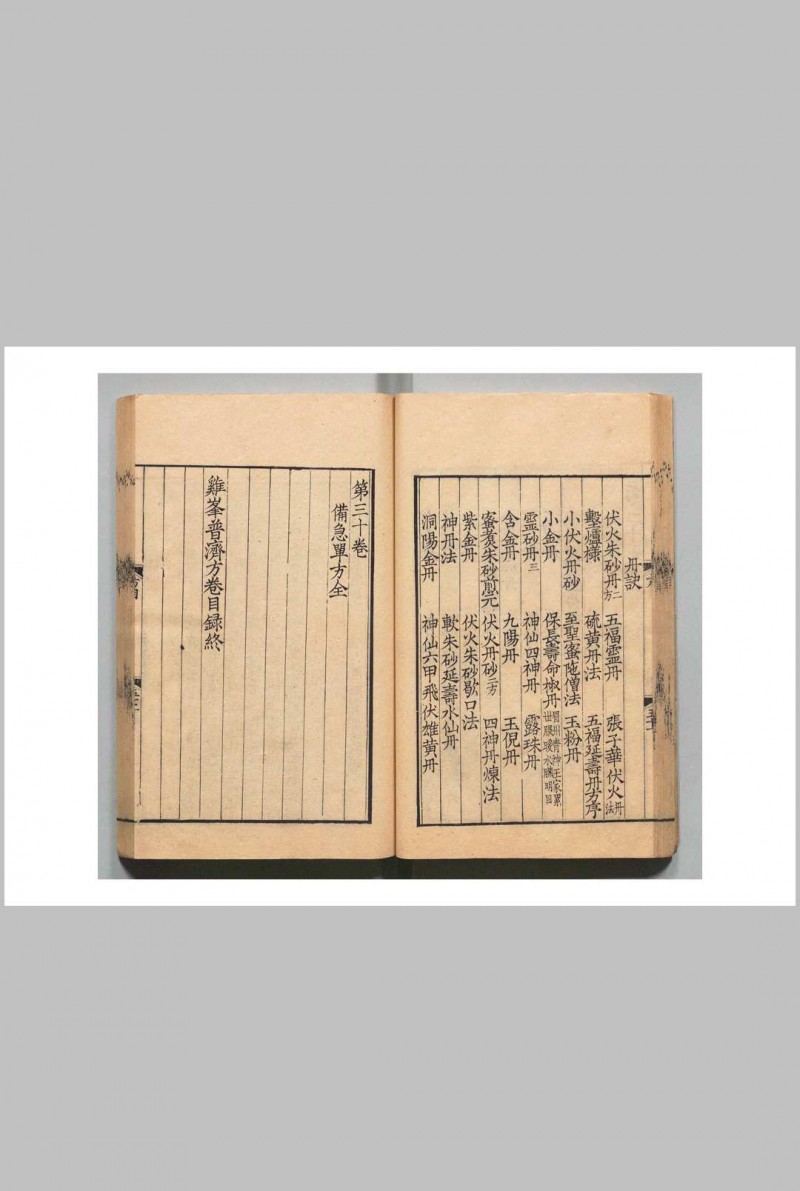 丹訣
伏火朱砂丹二方 五福靈丹 張子華伏火丹法
鑿爐樣 硫黃丹法 五福延壽丹方序
小伏火丹砂 至聖蜜陁僧法 玉粉丹
小金丹 保長壽命椒丹
靈砂丹三 神仙四神丹 露珠丹
含金丹 九陽丹 玉倪丹
蜜煮朱砂煎元 伏火丹砂二方 四神丹煉法
紫金丹 伏火朱砂歇口法
神丹法 軟朱砂延壽水仙丹
洞陽金丹 神仙六甲飛伏雄黃丹
第三十卷
備急單方全
雞峯普濟方卷目録終